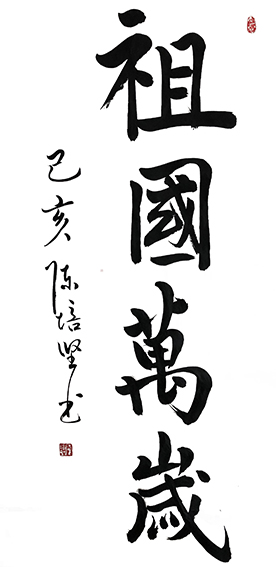 祖國萬歲
己亥陈培坚书